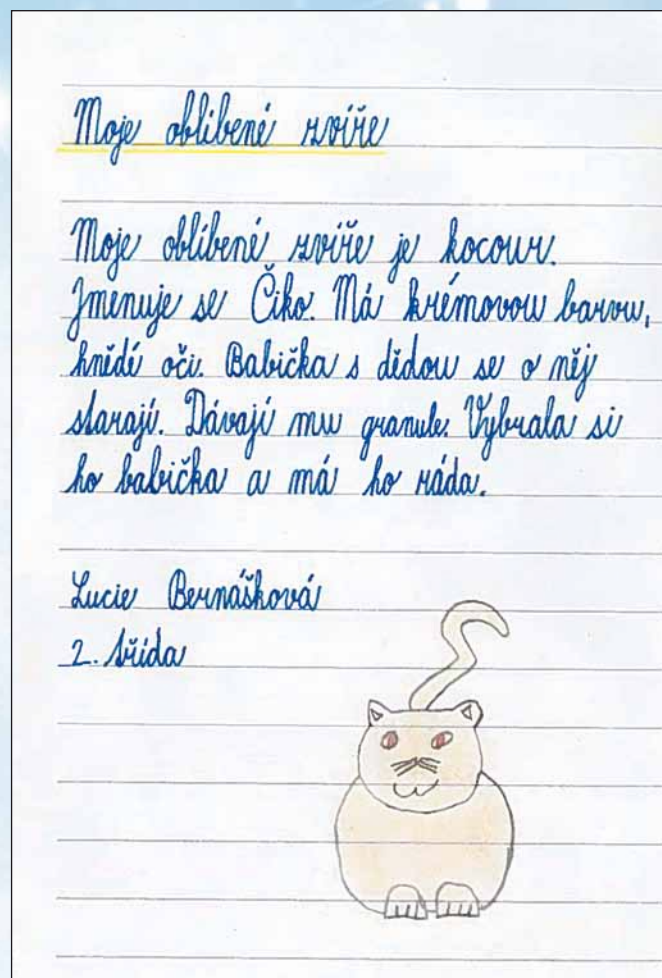 Moje oblíbené zvíře
Moje oblíbené zvíře je kocour.
Jmenuje se Čiko. Má krémovou barvu,
hnědé oči. Babička s dědou se o něj
starají. Dávají mu granule. Vybrala si
ho babička a má ho ráda.
Lucie Bernášková
2. třída